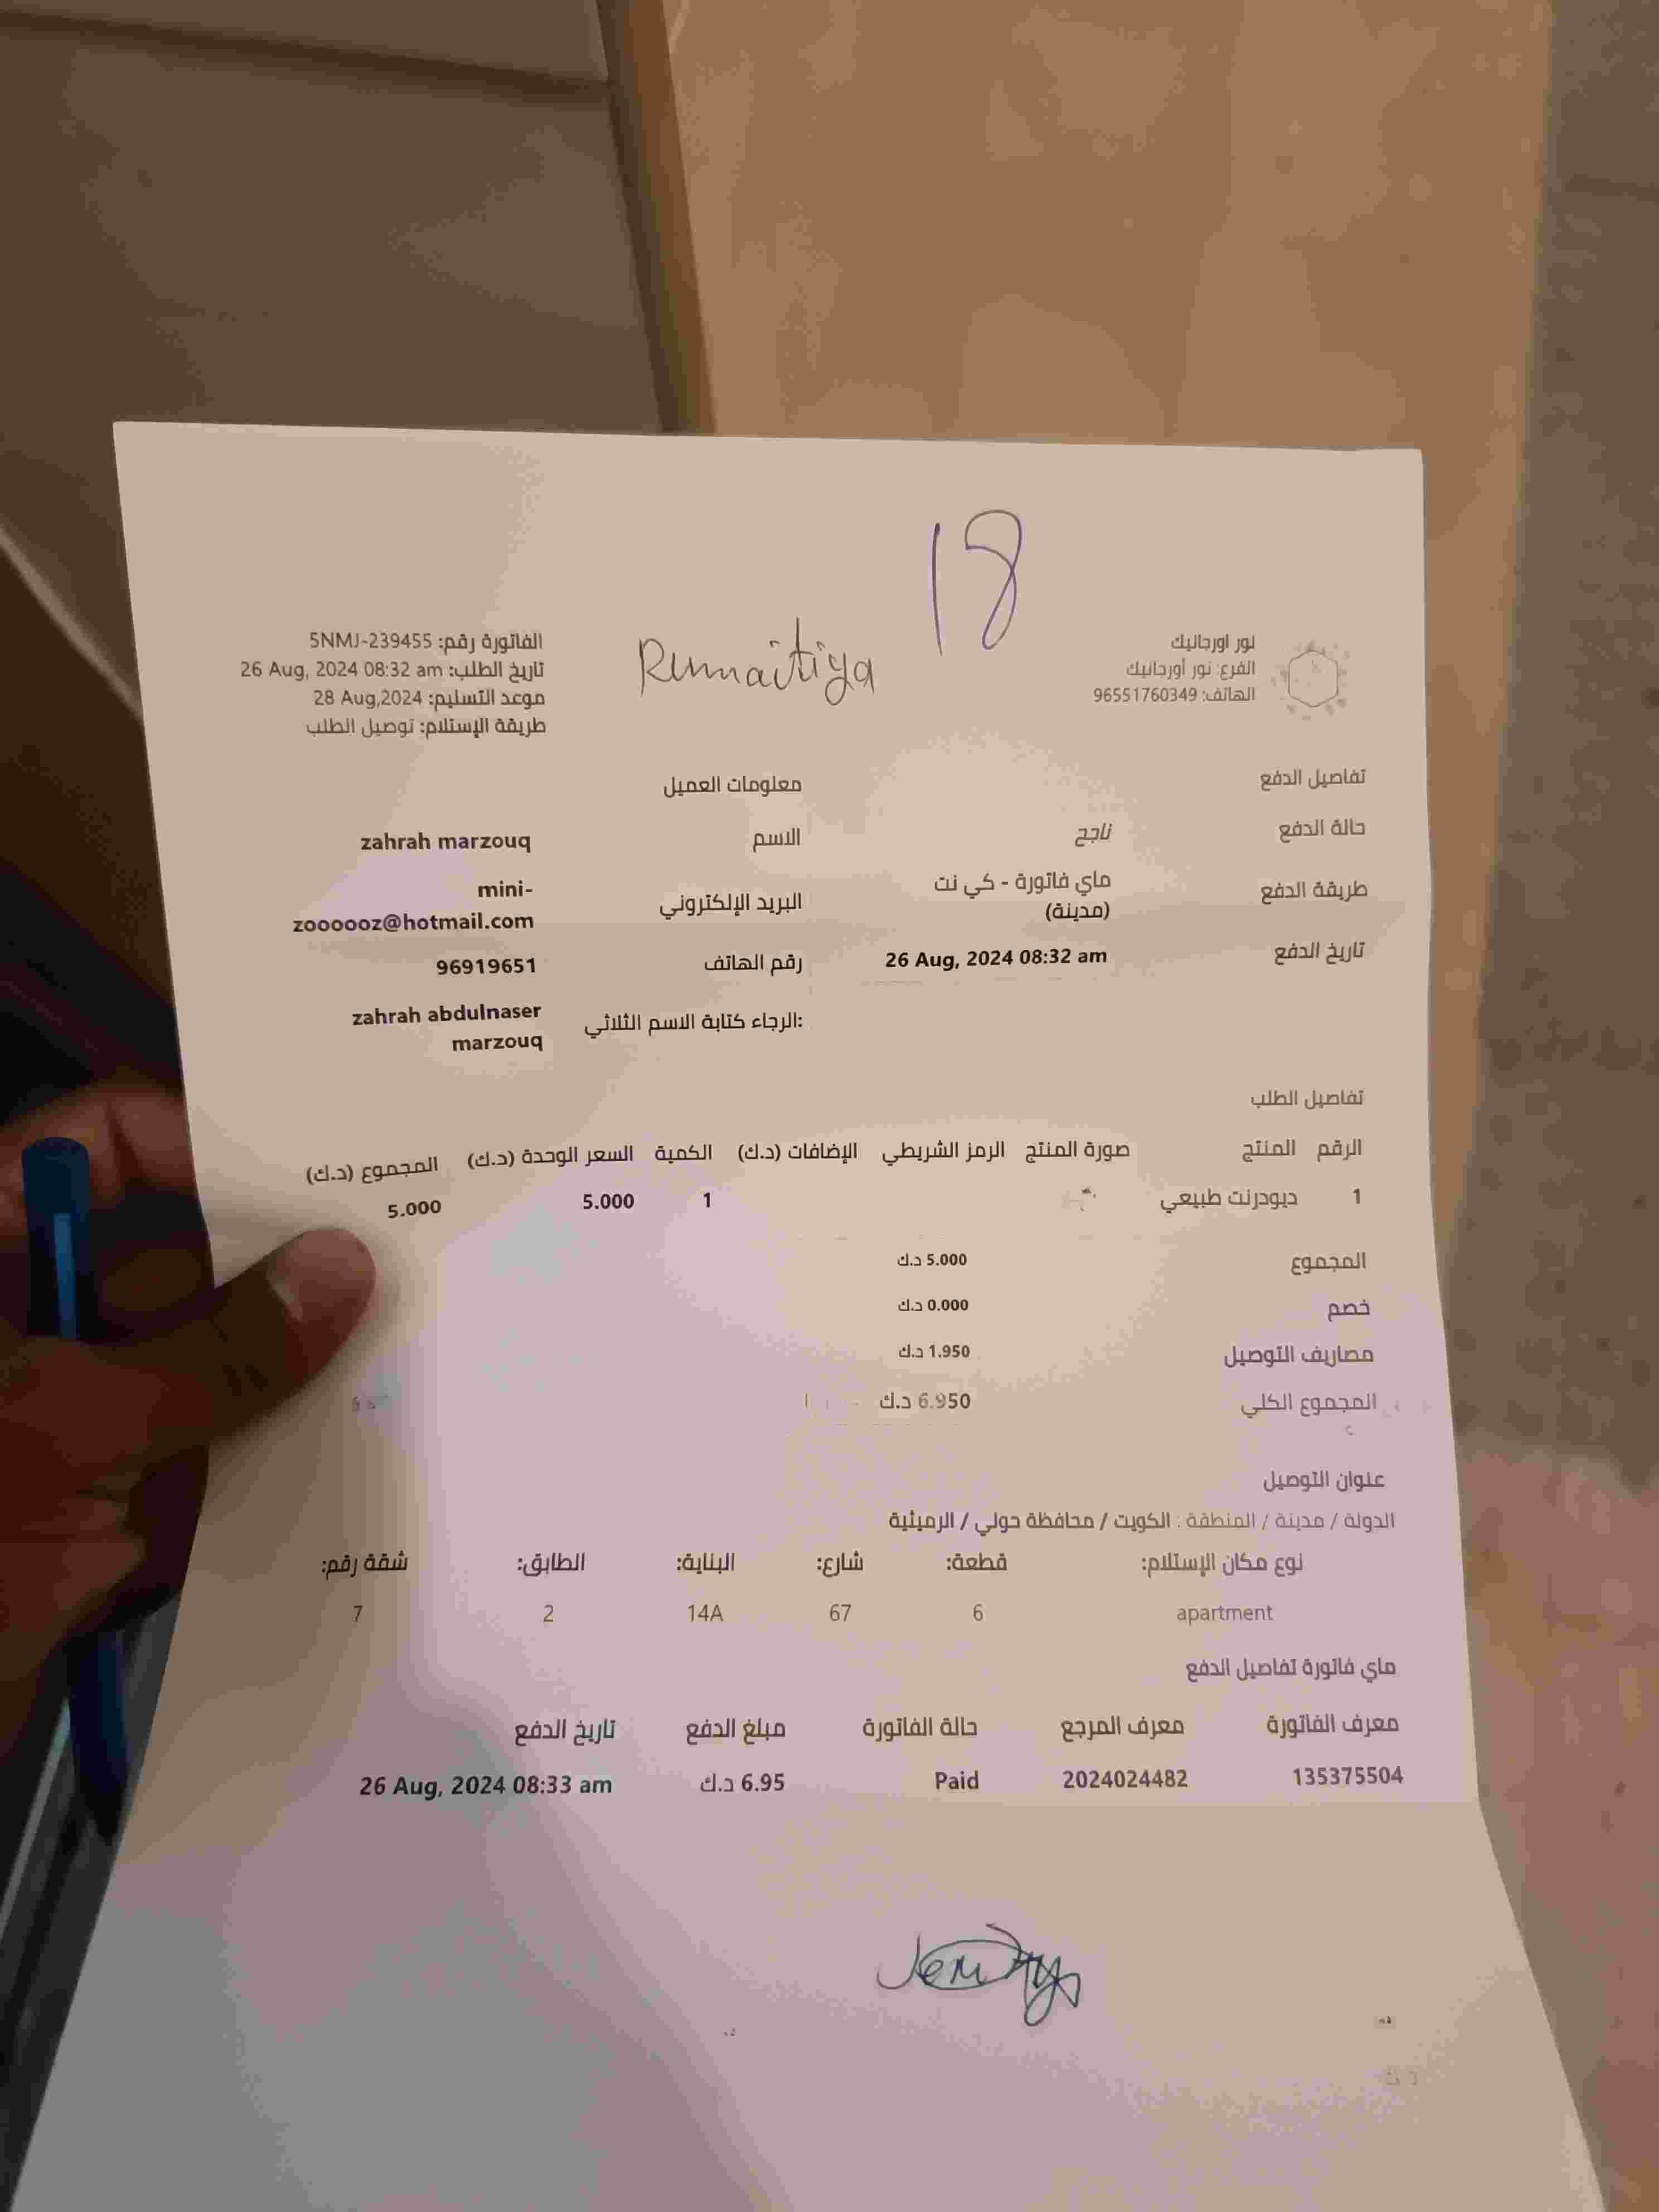 18
Rumaitiya
نور اورجانيك
الفرع: نور أورجانيك
الهاتف: 96551760349
الفاتورة رقم: 5NMJ-239455
تاريخ الطلب: 26 Aug, 2024 08:32 am
موعد التسليم: 28 Aug,2024
طريقة الإستلام: توصيل الطلب
تفاصيل الدفع
حالة الدفع ناجح
طريقة الدفع ماي فاتورة - كي نت
(مدينة)
تاريخ الدفع 26 Aug, 2024 08:32 am
معلومات العميل
الاسم zahrah marzouq
البريد الإلكتروني mini-
zoooooz@hotmail.com
رقم الهاتف 96919651
الرجاء كتابة الاسم الثلاثي: zahrah abdulnaser
marzouq
تفاصيل الطلب
الرقم المنتج صورة المنتج الرمز الشريطي الإضافات (د.ك) الكمية السعر الوحدة (د.ك) المجموع (د.ك)
1 ديودرنت طبيعي 1 5.000 5.000
المجموع 5.000 د.ك
خصم 0.000 د.ك
مصاريف التوصيل 1.950 د.ك
المجموع الكلي 6.950 د.ك
عنوان التوصيل
الدولة / مدينة / المنطقة : الكويت / محافظة حولي / الرميثية
نوع مكان الإستلام: قطعة: شارع: البناية: الطابق: شقة رقم:
apartment 6 67 14A 2 7
ماي فاتورة تفاصيل الدفع
معرف الفاتورة معرف المرجع حالة الفاتورة مبلغ الدفع تاريخ الدفع
135375504 2024024482 Paid 6.95 د.ك 26 Aug, 2024 08:33 am